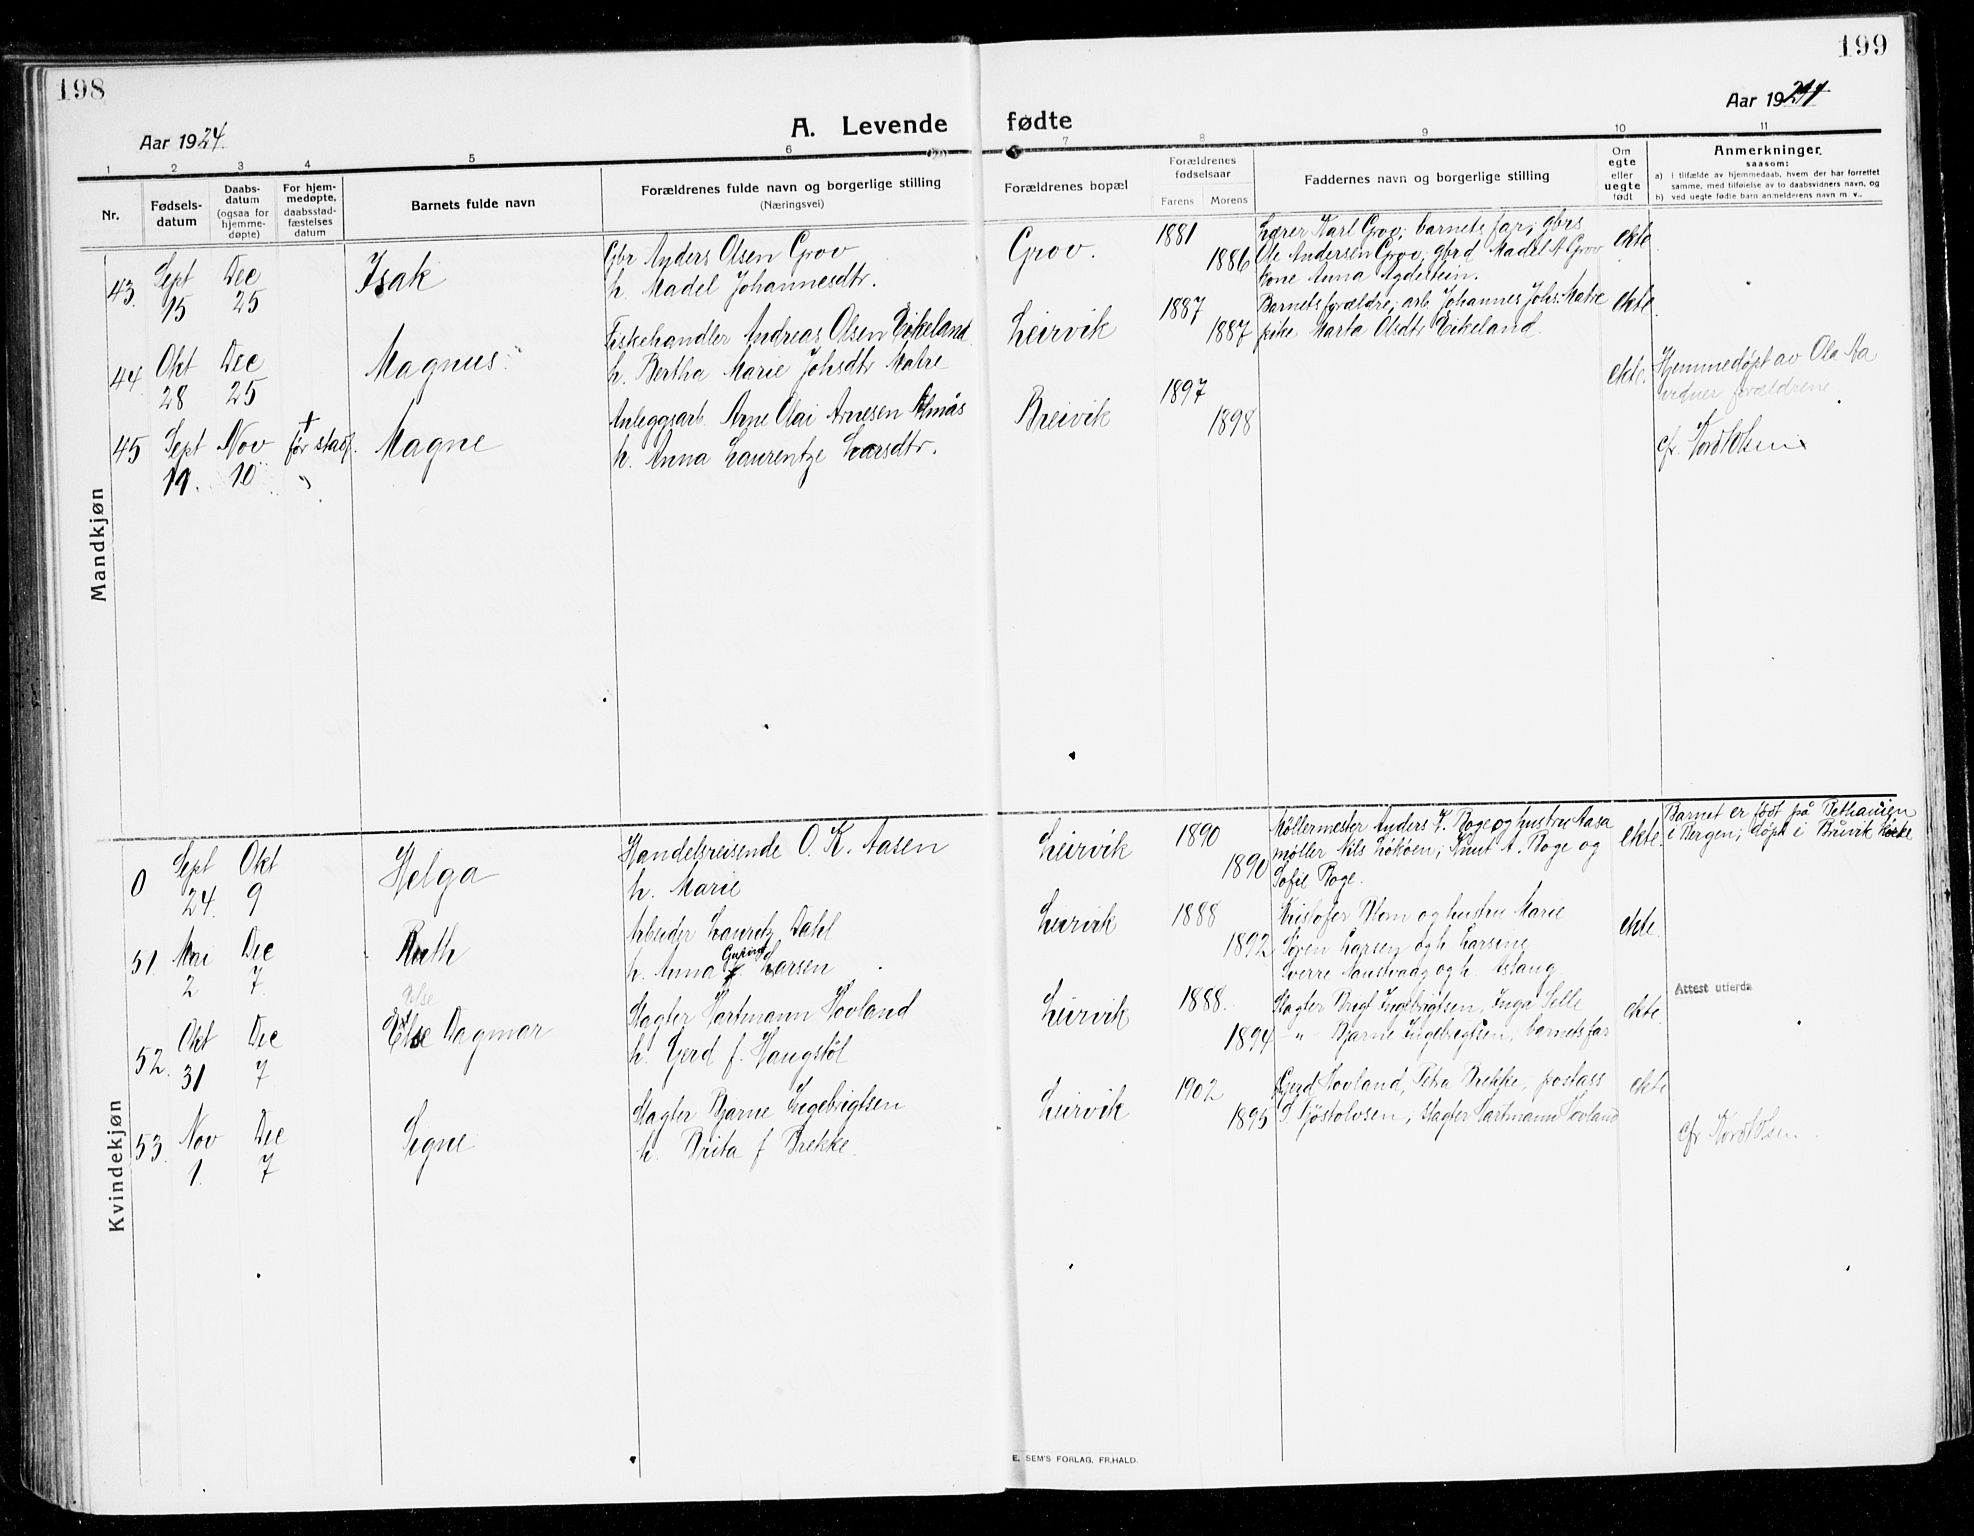 198
199
Aar 1924
A. Levende fødte
Aar 1924
1 2 3 4 5 6 7 8 9 10 11
Nr.
Fødsels-
datum
Daabs-
datum
(ogsaa for
hjemme-
døpte)
For hjem-
medøpte,
daabsstad-
fæstelses
datum
Barnets fulde navn
Forældrenes fulde navn og borgerlige stilling
(Næringsvei)
Forældrenes bopæl
Forældrenes
fødselsaar
Farens Morens
Faddernes navn og borgerlige stilling
Om
egte
eller
uegte
født
Anmerkninger.
saasom:
a) i tilfælde av hjemmedaab, hvem der har forrettet
samme, med tilføielse av to daabsvidners navn, og
b) ved uegte fødte barn anmelderens navn m. v..
Mandkjøn
43. Sept 15 Dec 25 Isak
Gbr Anders Olsen Grov
h. Madel Johannesdtr.
Grov. 1881 1886
Lærer Karl Grov; barnets far; gbrs
Ole Andersen Grov; gbrd Madel A Grov
kone Anna
ekte.
44. Okt 28 Dec 25 Magnus
Fiskehandler Andreas Olsen Eikeland
h. Bertha Marie Johsdtr Matre
Leirvik 1887 1887
Barnets forældre; arb. Johannes Johs. Matre
pike Marta Olsdtr Eikeland.
ekte.
45 Sept 19. Nov 10 † før stadf. Magne
Anleggsarb. Arne Olai Arnesen Almås
h. Anna Laurentze Larsdtr.
Breivik 1897 1898
ekte.
Hjemmedøpt av Ola Aa
vidner forældrene.
cfr. Nordl Olsen
Kvindekjøn
0 Sept 24. Okt 9 Helga
Handelsreisende O. K. Aasen
h. Marie
Leirvik 1890 1890
Møllermester Anders K. Roge og hustru Aasa
møller Nils ; Knut A. Roge og
Sofie Roge.
ekte.
Barnet er født på Bethanien
i Bergen; døpt i kirke
51. Mai 2 Dec 7. Ruth
Arbeider Lauritz Dahl
h. Anna f Larsen
Leirvik 1888 1892
Kristofer Blom og hustru Marie
Søren Larsen og h. Larsine
Sverre og h. Aslaug
ekte.
52. Okt 31 Dec 7 Else Dagmar
Else
Slagter Hartmann Hovland
h. Gerd f. Haugstøl
Leirvik 1888. 1894
Slagter Bregt Ingebrigtsen, Inga Selle
-"- Bjarne Ingebrigtsen, barnets far
ekte.
Attest utferda
53. Nov 1. Dec 7 Signe
Slagter Bjarne Ingebrigtsen
h. Brita f Brekke.
Leirvik 1902 1895
Gerd Hovland, Petra Brekke, postass
S. Gjøstolvsen, slagter Hartmann Hovland
ekte
cfr Nordl Olsen.
E. SEM'S FORLAG, FR.HALD.